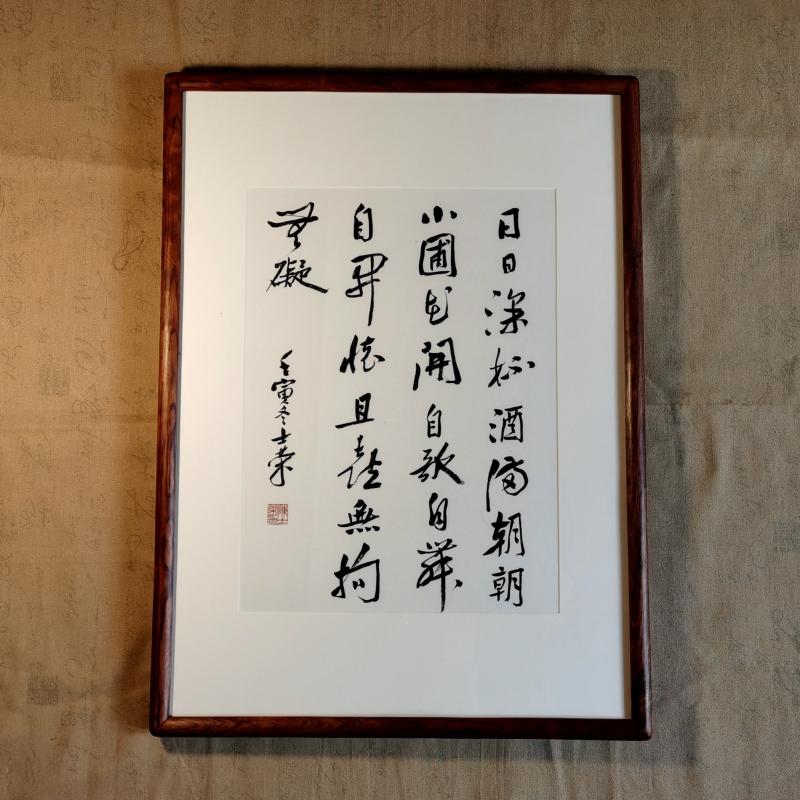 日日深杯酒滿朝朝
小圃花開自歌自舞
自開懷且喜無拘
無礙
壬寅冬士榮